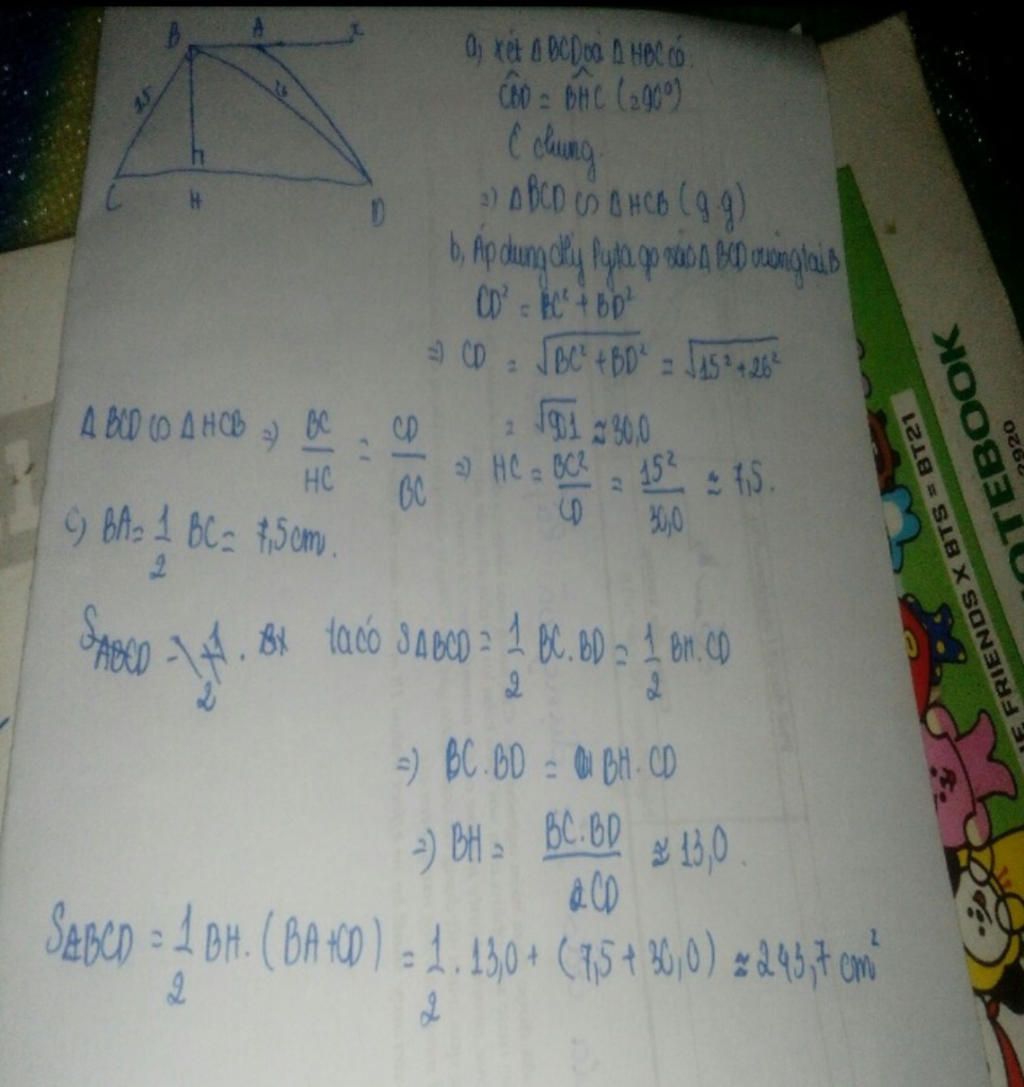 B A x
25 26
C H D
a, xét Δ BCD và Δ HBC có:
CBD = BHC (=90°)
C chung.
=> Δ BCD ∽ Δ HCB (g.g)
b, Áp dụng đlý Pytago vào Δ BCD vuông tại B
CD² = BC² + BD²
=> CD = √BC² + BD² = √15² + 26²
= √901 ≈ 30,0
Δ BCD ∽ Δ HCB => BC/HC = CD/BC => HC = BC²/CD = 15²/30,0 ≈ 7,5.
c) BA = 1/2 BC = 7,5 cm.
SABCD = 1/2 . BX ta có SΔBCD = 1/2 BC.BD = 1/2 BH.CD
=> BC.BD = BH.CD
=> BH = BC.BD/2CD ≈ 13,0.
SABCD = 1/2 BH. (BA+CD) = 1/2 . 13,0 + (7,5 + 30,0) ≈ 243,7 cm²
NOTEBOOK
2920
E FRIENDS X BTS = BT21